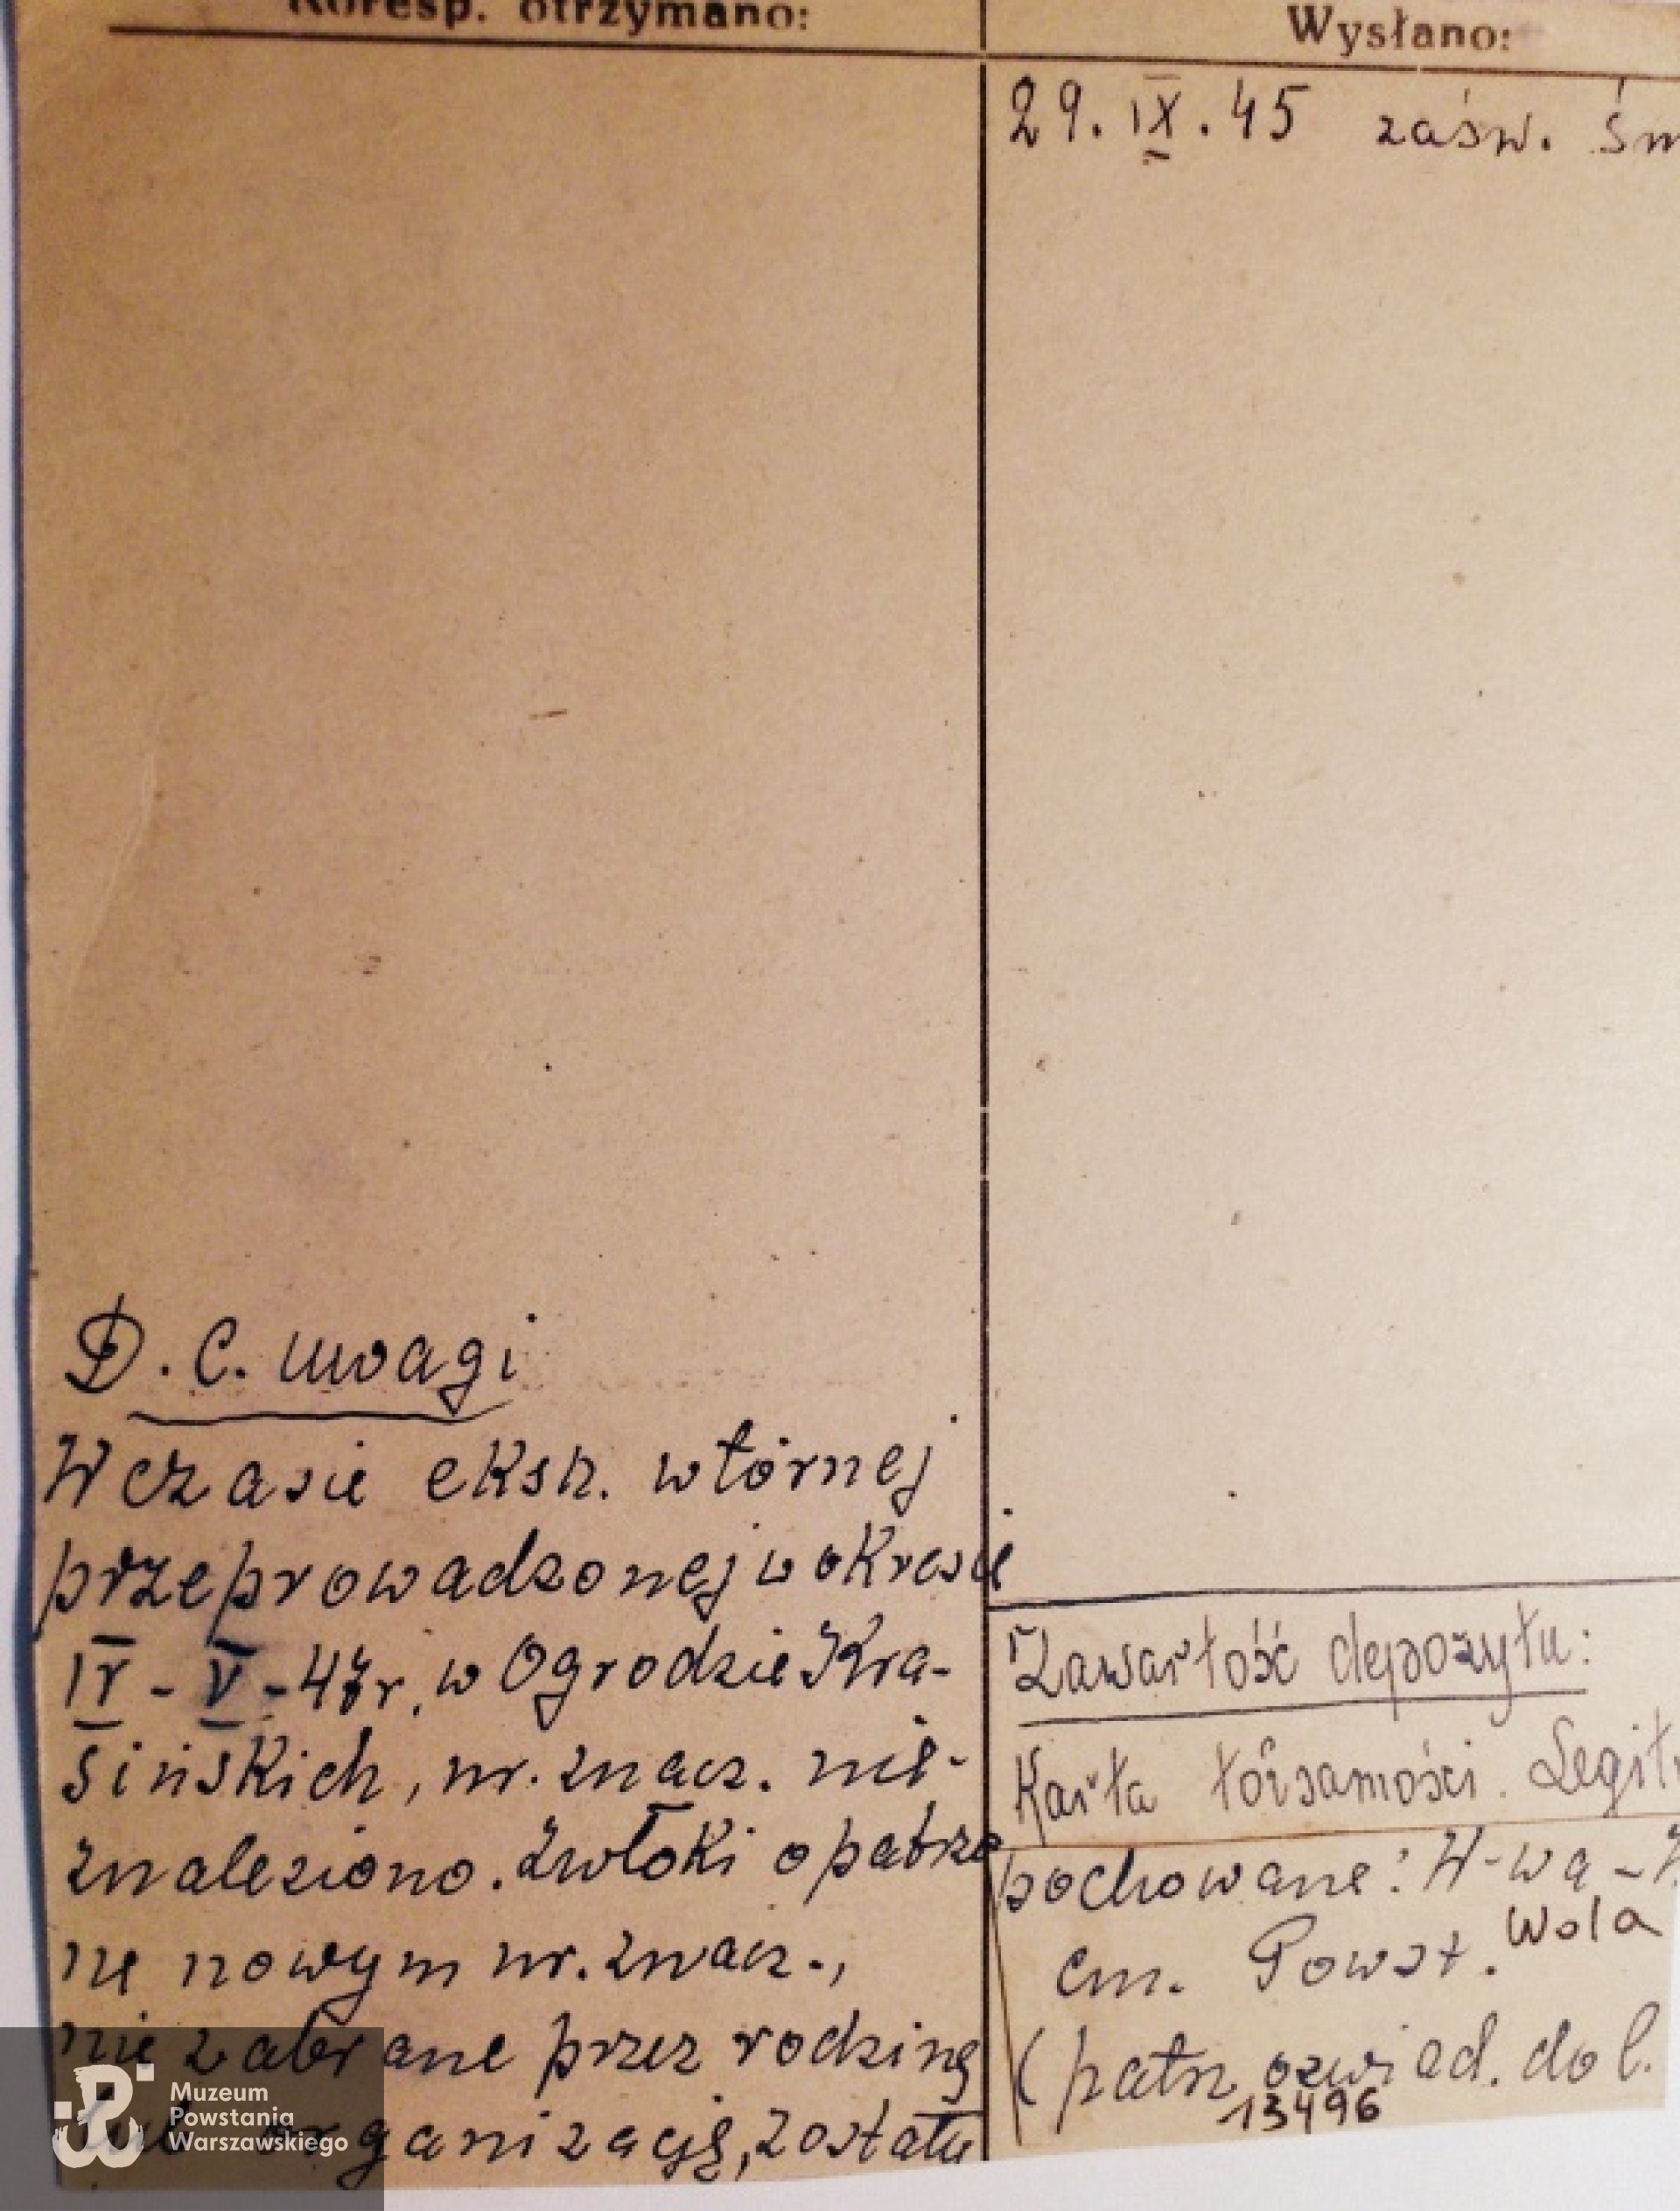 Koresp. otrzymano:
Wysłano:
29. IX. 45 zaśw. śm
D. C. uwagi
W czasie eksh. wtórnej
przeprowadzonej w okresie
IV - V - 47 r. w Ogrodzie Kra-
sińskich, nr. znacz. nie-
znaleziono. Zwłoki opatrzo
ne nowym nr. znacz.,
nie zabrane przez rodzinę
lub organizację, zostały
Zawartość depozytu:
Karta tożsamości. Legit
pochowane: W-wa -
cm. Powst. Wola
(patrz ozwiad. do l.
13496
Muzeum
Powstania
Warszawskiego